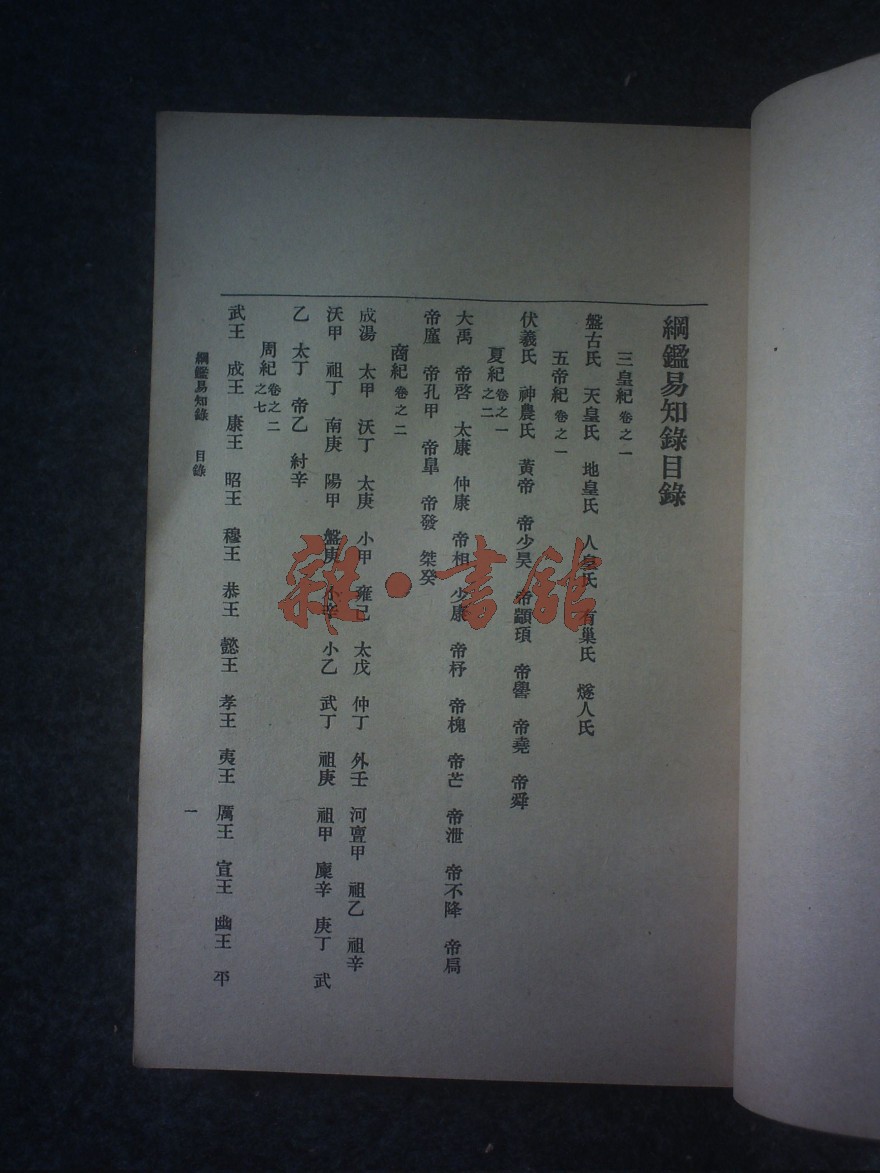 綱鑑易知錄目錄
三皇紀 卷之一
盤古氏 天皇氏 地皇氏 人皇氏 有巢氏 燧人氏
五帝紀 卷之一
伏羲氏 神農氏 黃帝 帝少昊 帝顓頊 帝嚳 帝堯 帝舜
夏紀 卷之一之二
大禹 帝啓 太康 仲康 帝相 少康 帝杼 帝槐 帝芒 帝泄 帝不降 帝扃
帝廑 帝孔甲 帝臯 帝發 桀癸
商紀 卷之二
成湯 太甲 沃丁 太庚 小甲 雍己 太戊 仲丁 外壬 河亶甲 祖乙 祖辛
沃甲 祖丁 南庚 陽甲 盤庚 小辛 小乙 武丁 祖庚 祖甲 廩辛 庚丁 武
乙 太丁 帝乙 紂辛
周紀 卷之二之七
武王 成王 康王 昭王 穆王 恭王 懿王 孝王 夷王 厲王 宣王 幽王 平
綱鑑易知錄 目錄
一
雜·書館